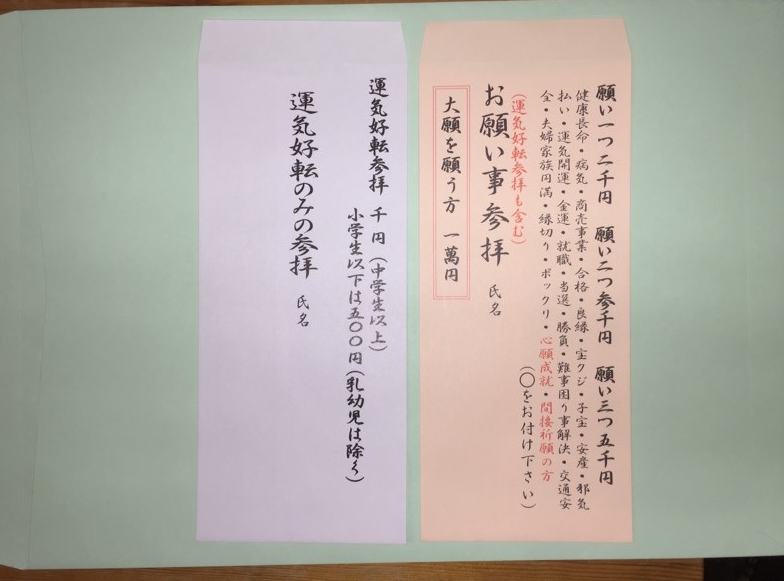 願い一つ二千円　願い二つ参千円　願い三つ五千円
健康長命・病気・商売事業・合格・良縁・宝クジ・子宝・安産・邪気
払い・運気開運・金運・就職・当選・勝負・難事困り事解決・交通安
全・夫婦家族円満・縁切り・ポックリ・心願成就・間接祈願の方
（〇をお付け下さい）
（運気好転参拝も含む）
お願い事参拝　氏名
大願を願う方　一萬円
運気好転参拝　千円（中学生以上）
小学生以下は五〇〇円（乳幼児は除く）
運気好転のみの参拝　氏名